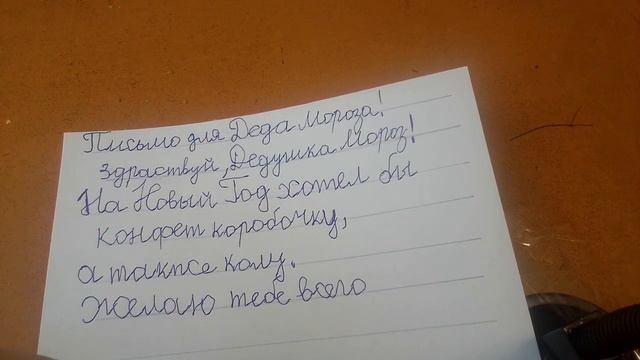 Письмо для Деда Мороза!
Здраствуй, Дедушка Мороз!
На Новый Год хотел бы
конфет коробочку,
а также колу.
Желаю тебе всего